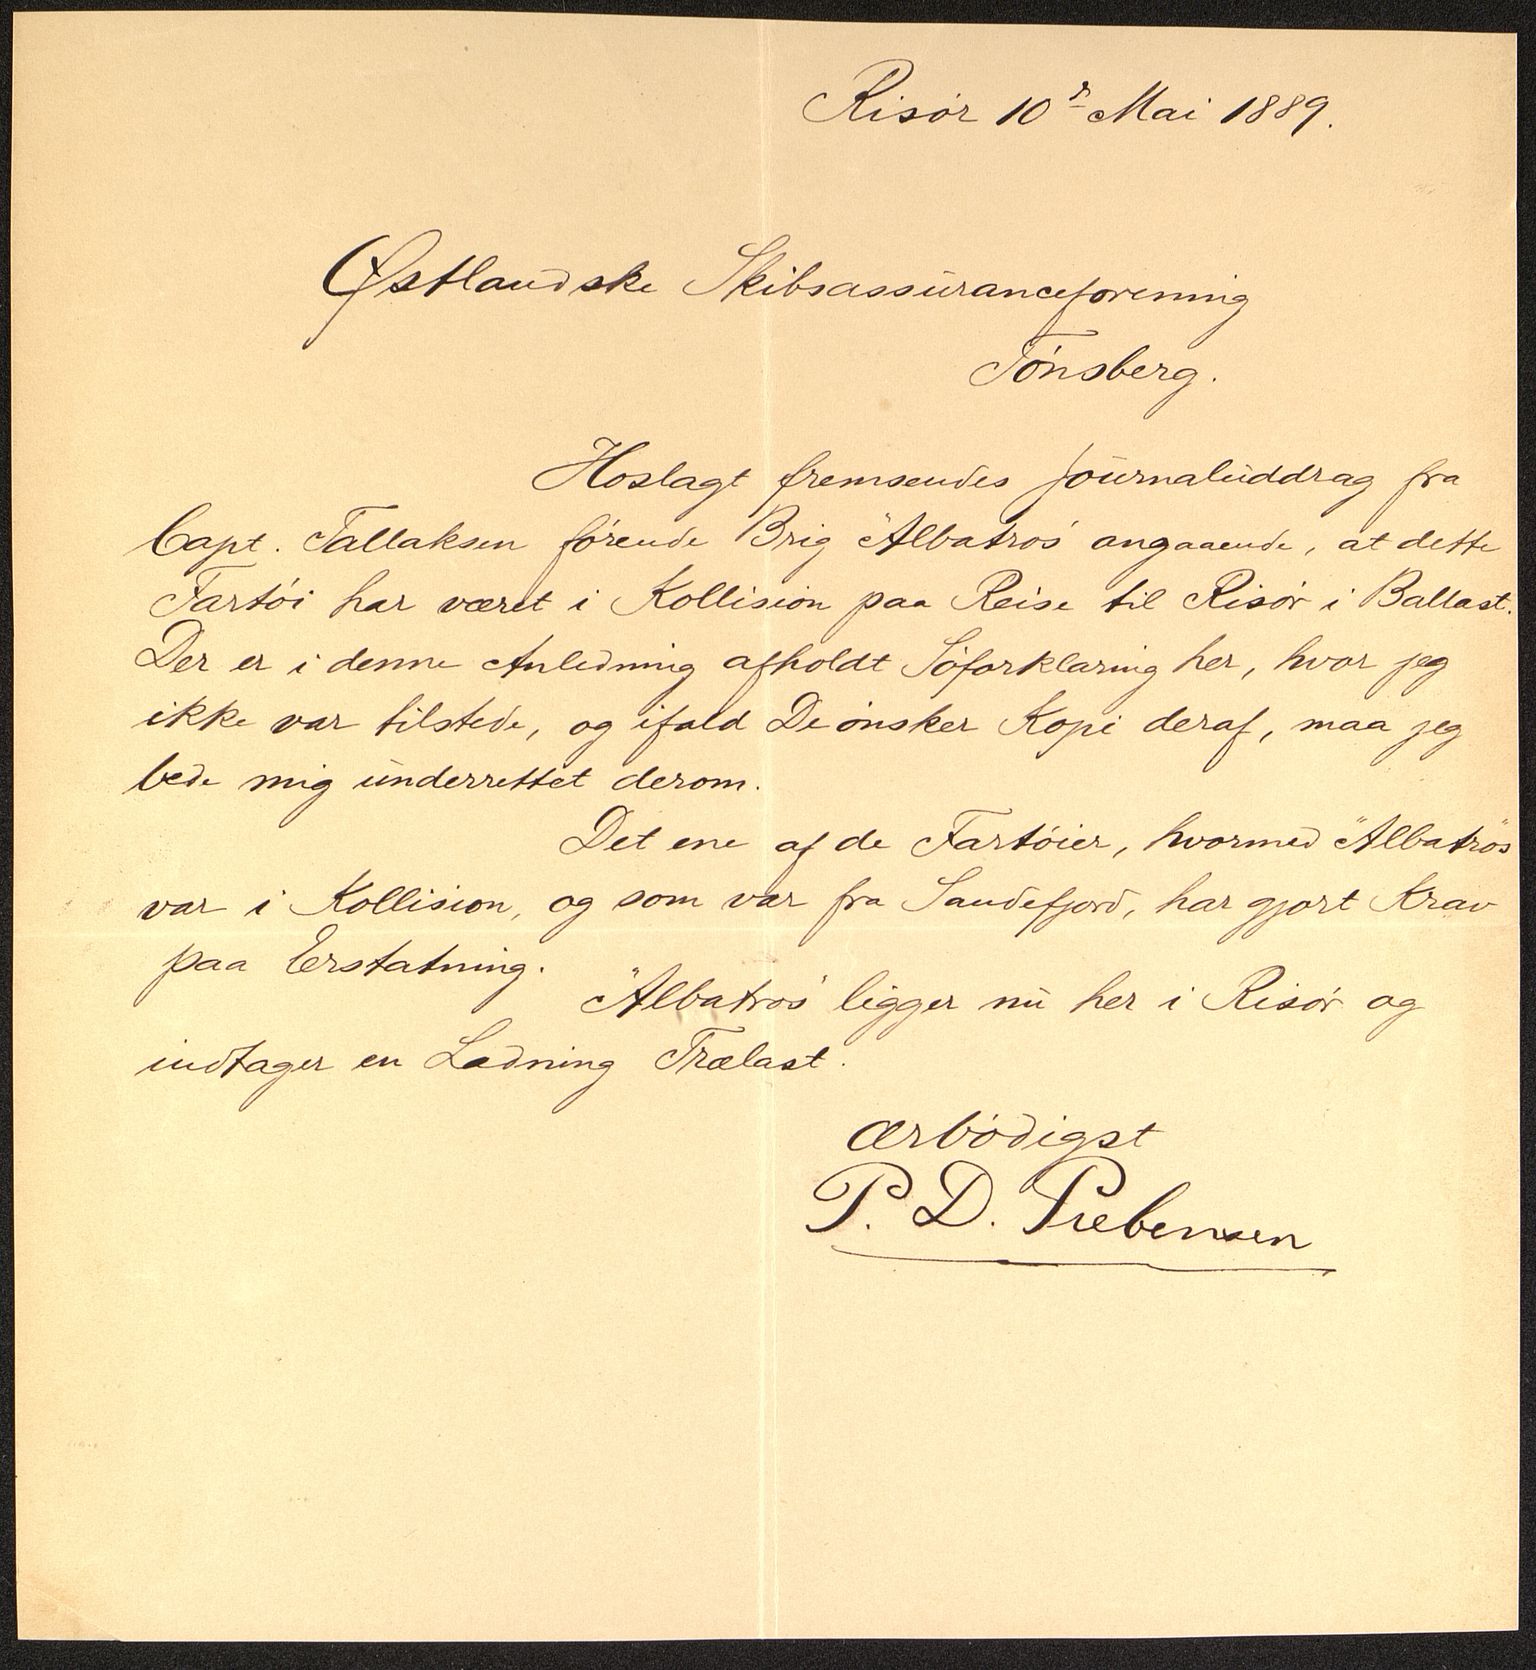 Risør 10ᵈᵉ Mai 1889.
Østlandske Skibsassuranceforening
Tønsberg.
Hoslagt fremsendes Journaluddrag fra
Capt. Tallaksen førende Brig "Albatros" angaaende, at dette
Fartøi har været i Kollision paa Reise til Risør i Ballast.
Der er i denne Anledning afholdt Søforklaring her, hvor jeg
ikke var tilstede, og ifald De ønsker Kopi deraf, maa jeg
bede mig underrettet derom.
Det ene af de Fartøier, hvormed "Albatros"
var i Kollision, og som var fra Sandefjord, har gjort Krav
paa Erstatning.
"Albatros" ligger nu her i Risør og
indtager en Ladning Trælast.
ærbødigst
P. D. Prebensen